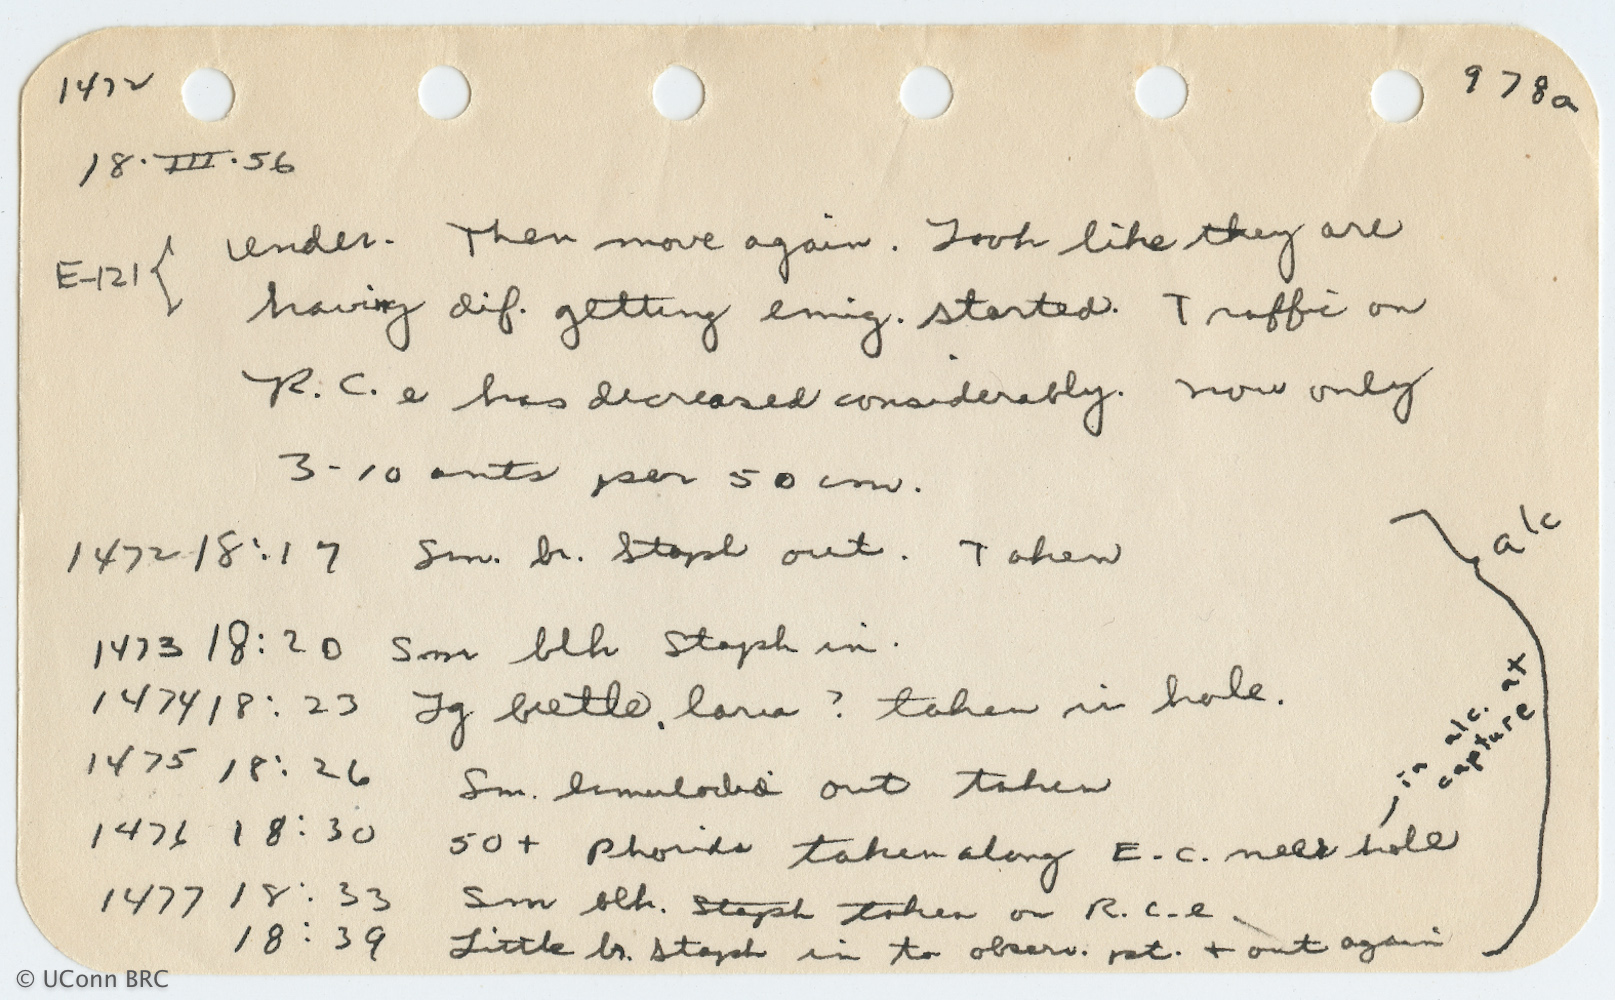 1472 978a
18·III·56
E-121 { under. Then move again. Look like they are
having dif. getting emig. started. Traffic on
R.C. e has decreased considerably. Now only
3-10 ants per 50 cm.
1472 18:17 Sm. br. Staph out. Taken
alc
1473 18:20 Sm blk Staph in.
1474 18:23 Lg beetle, larva? taken in hole.
1475 18:26 Sm. limulodid out taken
in alc. at capture
1476 18:30 50+ Phorids taken along E.C. near hole
1477 18:33 Sm blk. Staph taken on R.C.e.
18:39 Little br. Staph in to observ. pt. + out again
© UConn BRC